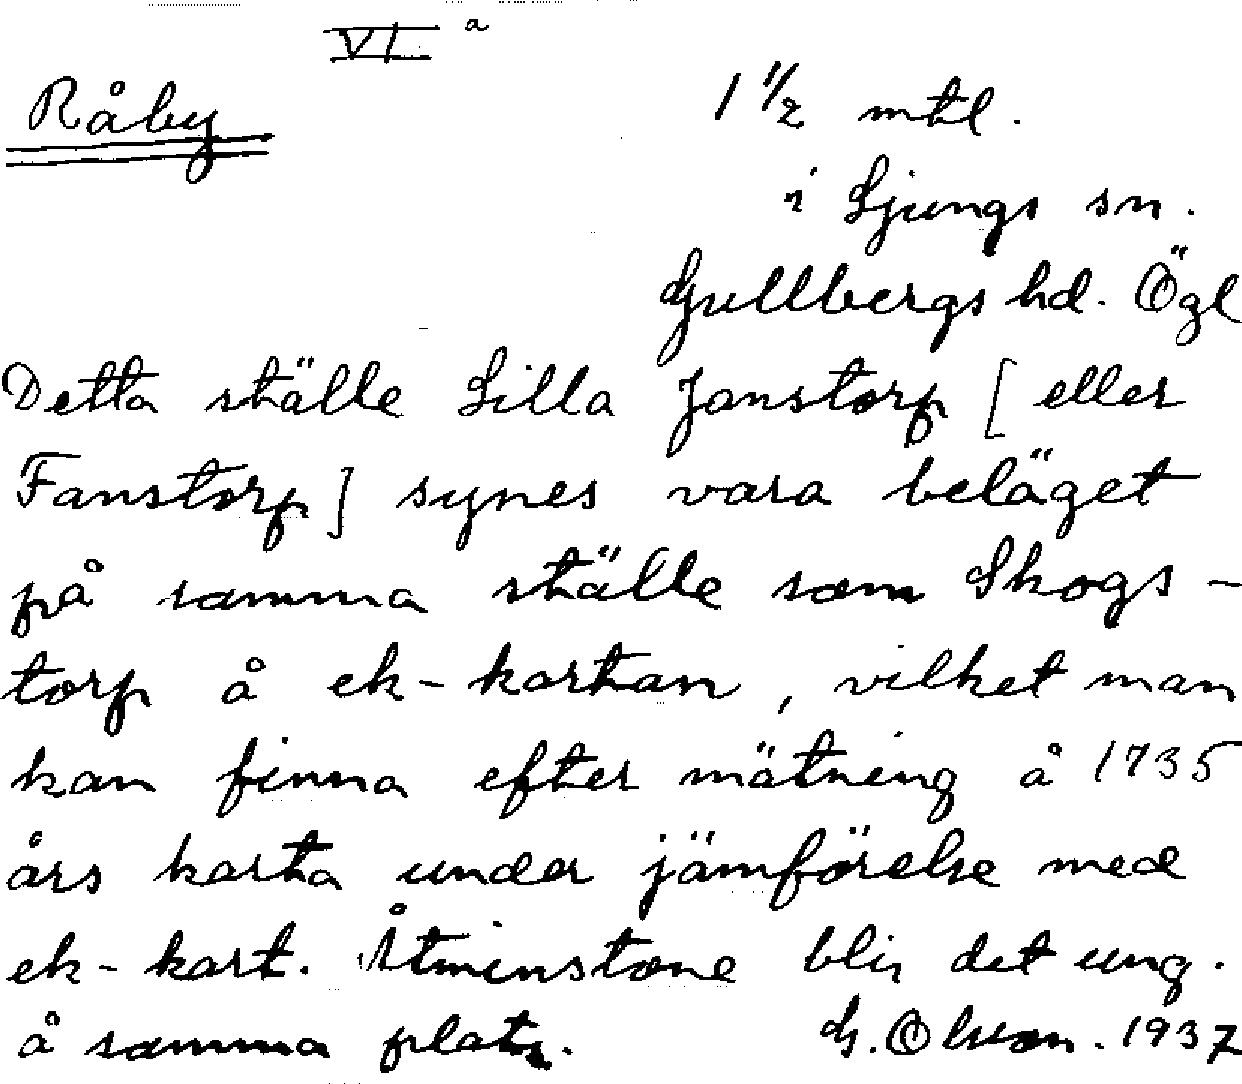 VI a
Råby
1 1/2 mtl.
i Ljungs sn.
Gullbergs hd. Ögl
Detta ställe Lilla Janstorp [eller
Fanstorp] synes vara beläget
på samma ställe som Skogs-
torp å ek-kartan, vilket man
kan finna efter mätning å 1735
års karta under jämförelse med
ek-kart. Åtminstone blir det ung.
å samma plats.
G. Olsson. 1937